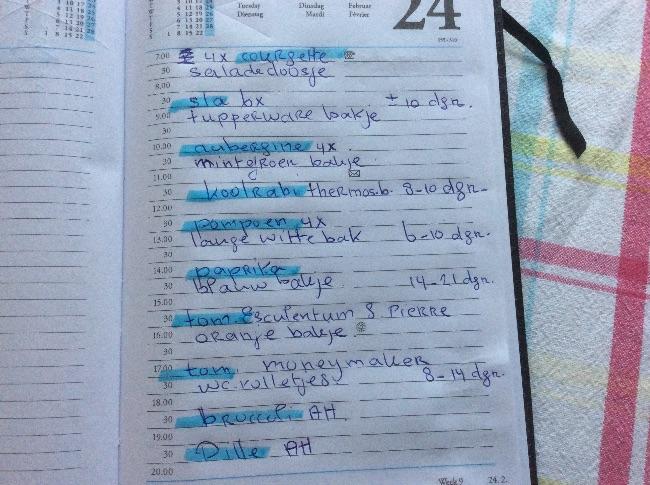 Tuesday Dinsdag Februar
Dienstag Mardi Février
24
7.00 4x courgette
30 saladedoosje
8.00
30 sla 6x ± 10 dgn.
9.00 tupperware bakje
30
10.00 aubergine 4x
30 mintgroen bakje
11.00
30 koolrabi thermos.b. 8-10 dgn-
12.00
30 pompoen 4x
13.00 lange witte bak 6-10 dgn.
30
14.00 paprika
30 blauw bakje 14-21 dgn.
15.00
30 tom. Esculentum S. Pierre
16.00 oranje bakje
30
17.00 tom. moneymaker
30 wc.rolletjes 8-14 dgn.
18.00
30 bruccoli AH
19.00
30 Dille AH
20.00
Week 9 24.2.